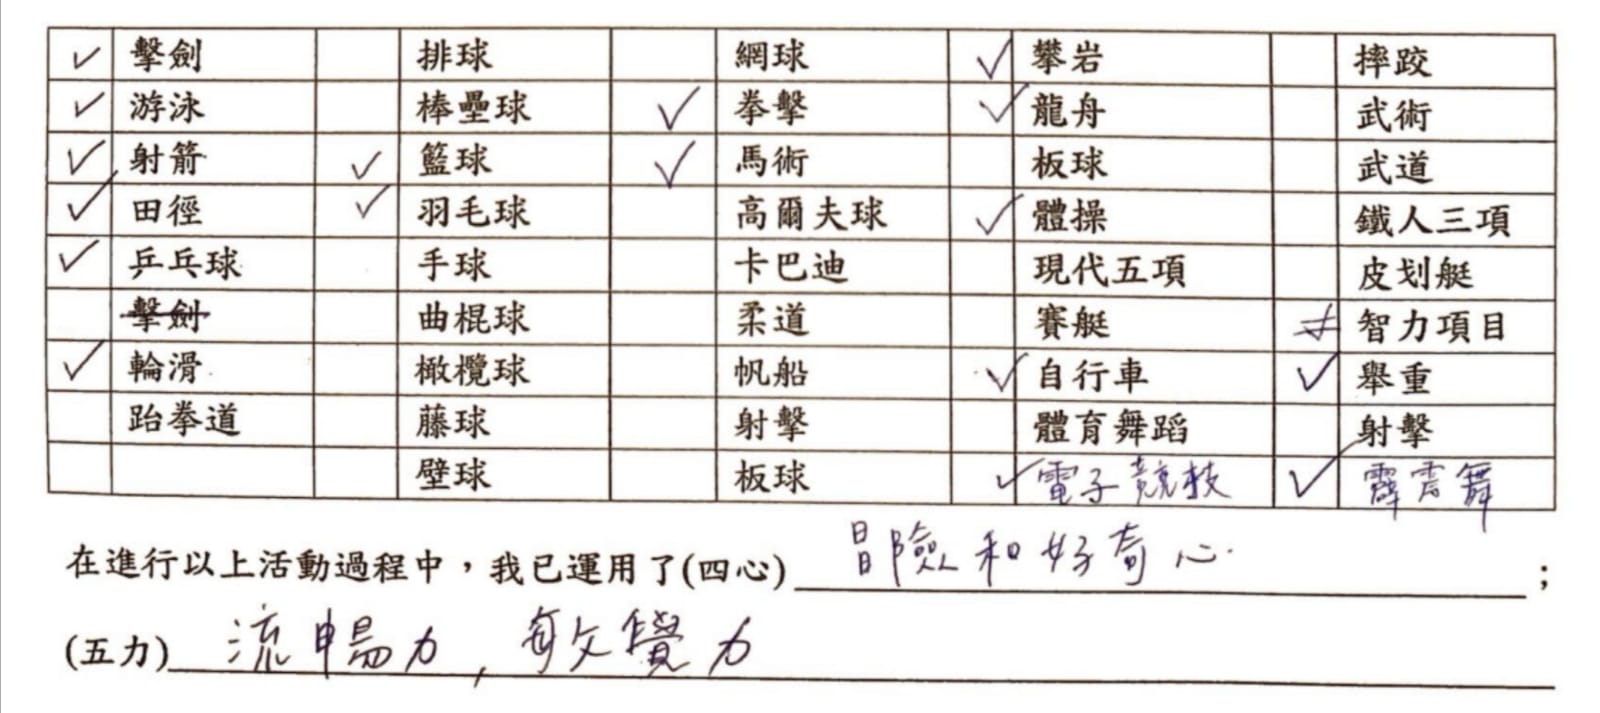 ✓ 擊劍 排球 網球 ✓ 攀岩 摔跤
✓ 游泳 棒壘球 ✓ 拳擊 ✓ 龍舟 武術
✓ 射箭 ✓ 籃球 ✓ 馬術 板球 武道
✓ 田徑 ✓ 羽毛球 高爾夫球 ✓ 體操 鐵人三項
✓ 乒乓球 手球 卡巴迪 現代五項 皮划艇
擊劍 曲棍球 柔道 賽艇 智力項目
✓ 輪滑 橄欖球 帆船 ✓ 自行車 ✓ 舉重
跆拳道 藤球 射擊 體育舞蹈 射擊
壁球 板球 ✓ 電子競技 ✓ 霹靂舞
在進行以上活動過程中，我已運用了(四心) 冒險和好奇心；
(五力) 流暢力，敏覺力